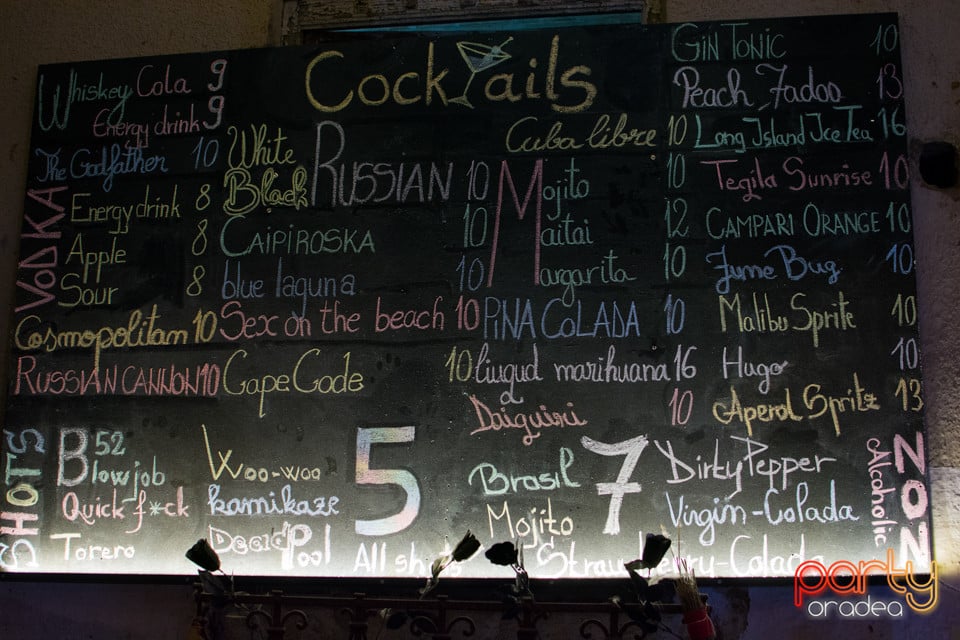 Cocktails
Whiskey Cola 9
Energy drink 9
The Godfather 10
VODKA
Energy drink 8
Apple 8
Sour 8
Cosmopolitan 10
RUSSIAN CANNON 10
White
Black
RUSSIAN 10
10
CAIPIROSKA
blue laguna 10
Sex on the beach 10
Cape Code 10
Cuba libre 10
Mojito 10
Maitai 12
Margarita 10
PiNA COLADA 10
liugud marihuana 16
Daiguiri 10
GIN TONIC 10
Peach Fadoo 13
Long Island Ice Tea 16
Tegila Sunrise 10
CAMPARI ORANGE 10
June Bug 10
Malibu Sprite 10
Hugo 10
Aperol Spritz 13
SHOTS
B52
Blowjob
Quick f*ck
Torero
Woo-woo
kamikaze
Dead Pool
5
All shots
Brasil
Mojito
7
Dirty Pepper
Virgin-Colada
Strawberry-Colada
NON
Alcoholic
party
oradea